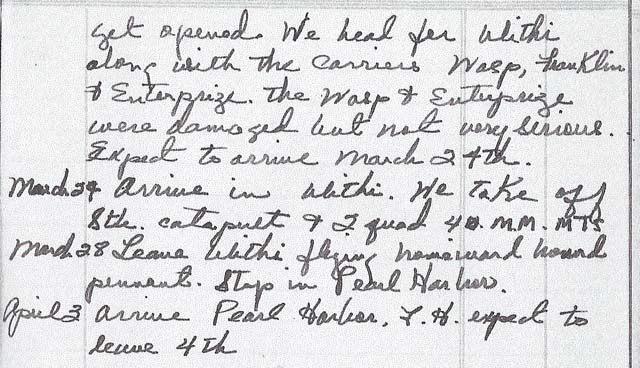 get opened. We head for Ulithi
along with the carriers Wasp, Franklin
& Enterprize. the Wasp & Enterprize
were damaged but not very serious.
Expect to arrive March 24th.
March 24 Arrive in Ulithi. We take off
Stb. catapult & 2 quad 40. M.M. MTS
March 28 Leave Ulithi flying homeward bound
pennent. Stop in Pearl Harbor.
April 3 Arrive Pearl Harbor, T.H. expect to
leave 4th